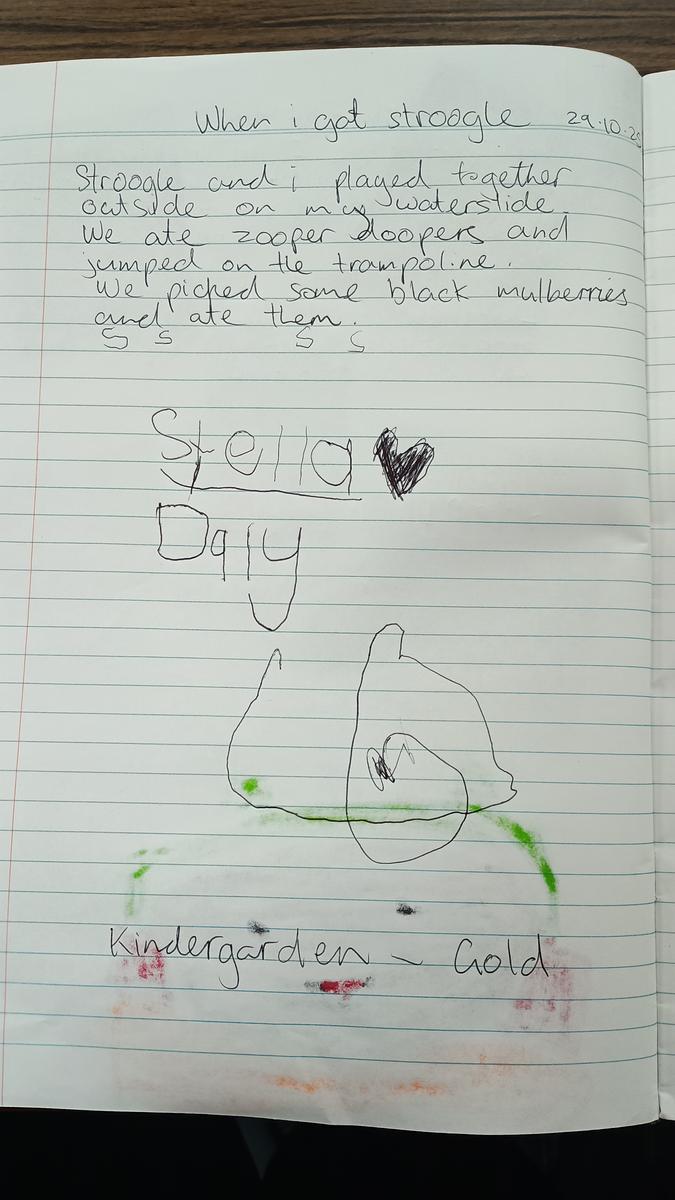 When i got stroogle 29.10.20
Stroogle and i played together
outside on my waterslide.
We ate zooper doopers and
jumped on the trampoline.
We picked some black mulberries
and ate them.
S S S S
Stella
Daly
Kindergarden - Gold